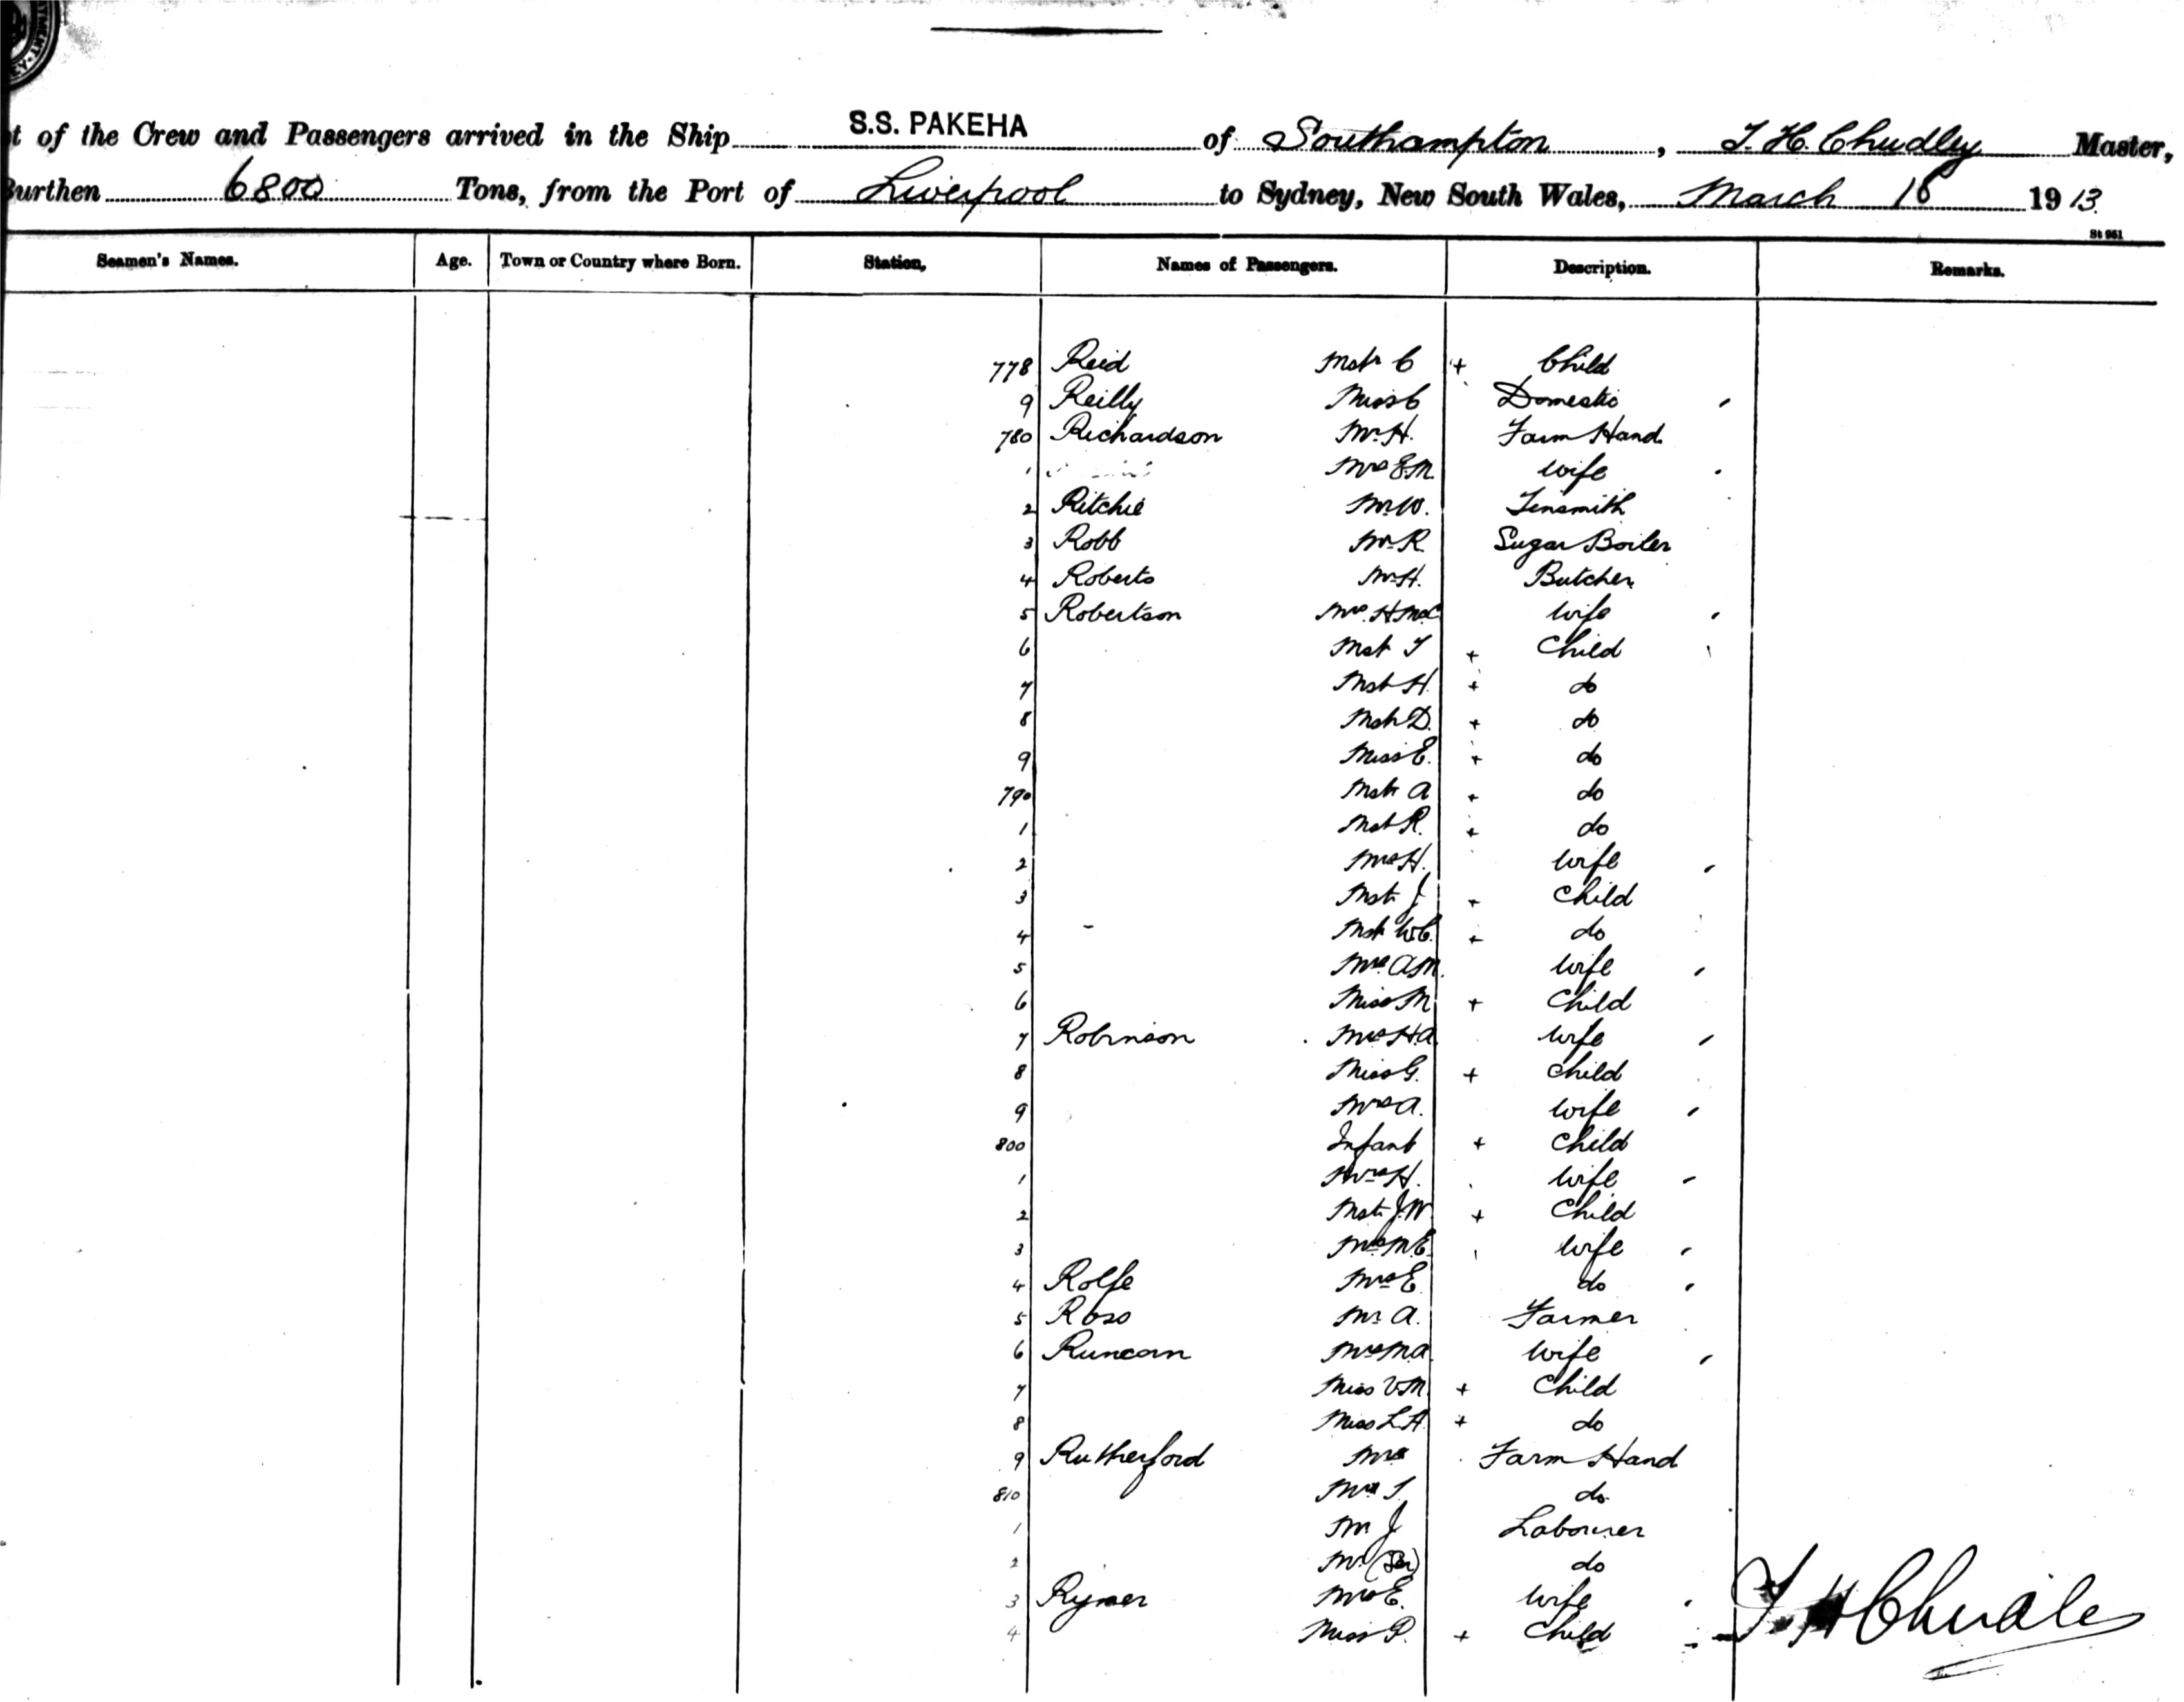 t of the Crew and Passengers arrived in the Ship S.S. PAKEHA of Southampton, T. H. Chudley Master,
Burthen 6800 Tons, from the Port of Liverpool to Sydney, New South Wales, March 18 1913.
St 951
Seamen's Names. Age. Town or Country where Born. Station, Names of Passengers. Description. Remarks.
778 Reid Mstr C + Child
9 Reilly Miss C Domestic
780 Richardson Mr H. Farm Hand
1 Mrs E.M. wife
2 Ritchie Mr W. Tinsmith
3 Robb Mr R. Sugar Boiler
4 Roberts Mr H. Butcher
5 Robertson Mrs. H McC wife
6 Mstr T + Child
7 Mstr H. + do
8 Mstr D. + do
9 Miss E. + do
790 Mstr A + do
1 Mstr R. + do
2 Mrs H. wife
3 Mstr J + Child
4 Mstr W.C. + do
5 Mrs A.M. wife
6 Miss M + Child
7 Robinson Mrs H.A. wife
8 Miss G. + Child
9 Mrs A. wife
800 Infant + Child
1 Mrs H. wife
2 Mstr J.W + Child
3 Mrs M.E. wife
4 Rolfe Mrs E do
5 Ross Mr A. Farmer
6 Runcorn Mrs M.A. wife
7 Miss V.M. + Child
8 Miss L.A. + do
9 Rutherford Farm Hand
810 do
1 Mr J Labourer
2 Mr do
3 Rymer Mrs E. wife
4 Miss P. + Child
T H Chudley